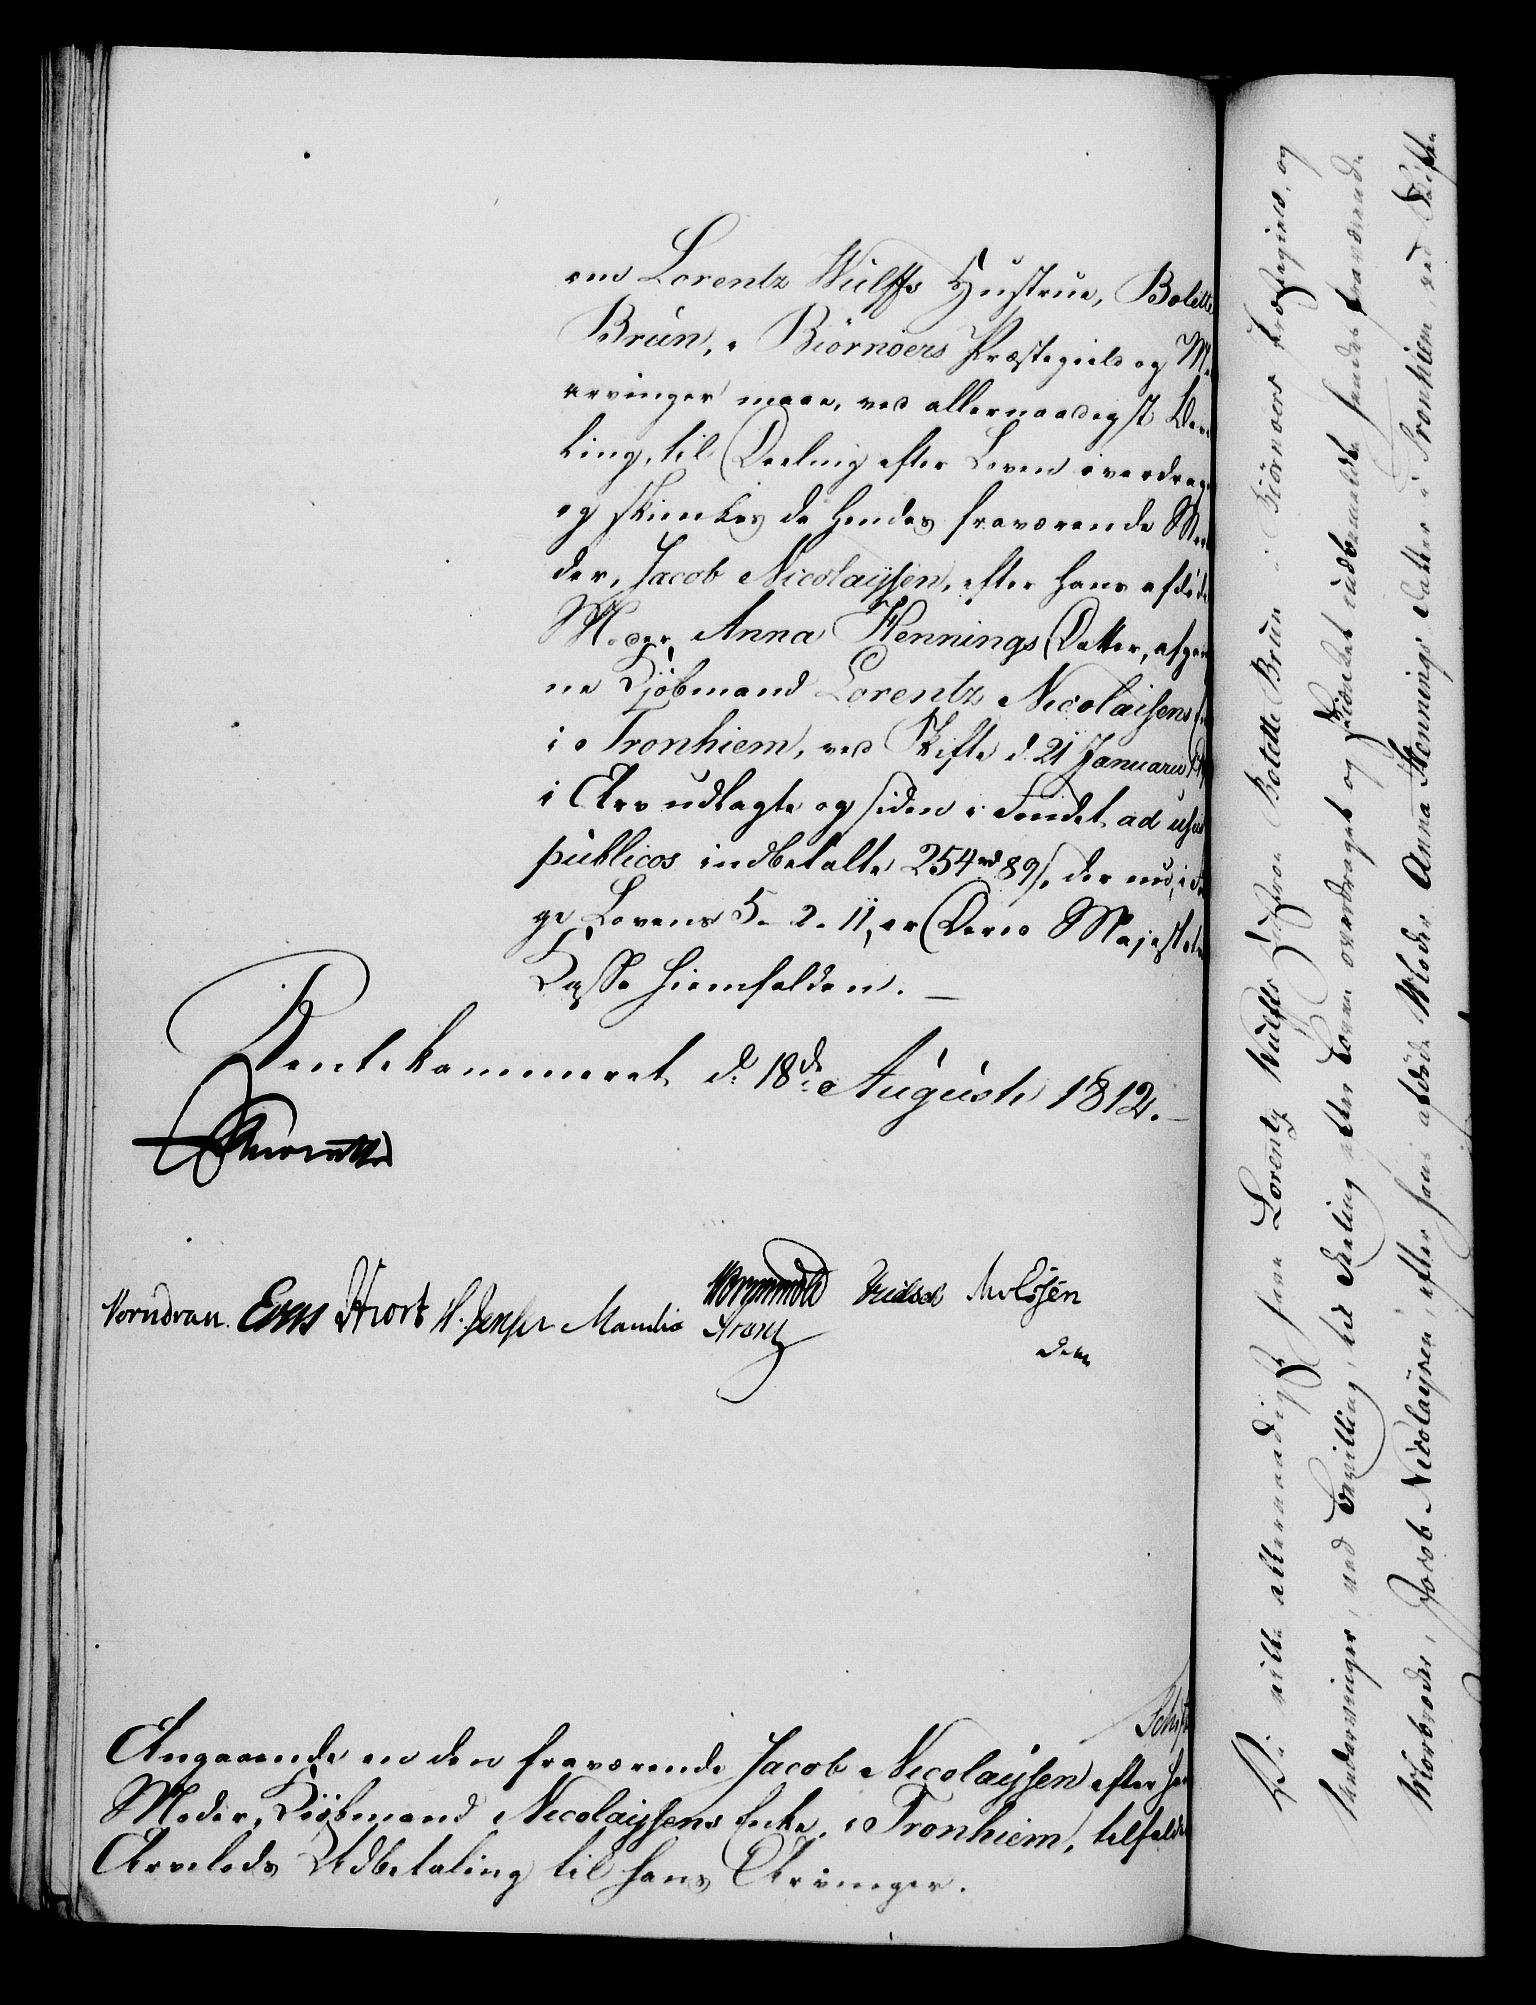 om Lorentz Wulffs Hustrue, Bolette
Brun, i Biörnöers Præstegield og Me
arvinger maae, ved allernaadigst Be
ling, til Deeling efter Loven overdrag
og skienkes de hendes fraværende Mor
der, Jacob Nicolaysen, efter hans afdøde
Moder, Anna Hennings Datter, afgan
ne Kjøbmand Lorentz Nicolaisens
i Tronhiem, ved Skifte d. 21 Januarii
i Arv udlagte og siden i Fondet ad usus
publicos indbetalte 254 rd 89 s. der nu, i Fø
ge Lovens 5-2-11, er Deres Majestæts
Casse hiemfalden. —
Rentekammeret d. 18de Augusti 1812. —
Vorndran. Hiort H. Jensen Manthe
dem
Angaaende en den fraværende Jacob Nicolaysen efter ha
Moder, Kiøbmand Nicolaysens Enke, i Tronhiem, tilfalde
Arvelods Udbetaling til hans Arvinger.
Vi ville allernaadigst, have Lorentz Wulffs Hustroe Bolette Brun i Biörnöers Præstegield, og
Medarvinger, ved Bevilling, til Deeling efter Loven overdraget og skienket indbemeldte hendes fraværende
Morbroder, Jacob Nicolaysen, efter hans afdøde Moder Anna Hennings Datter i Tronhiem ved Skifte